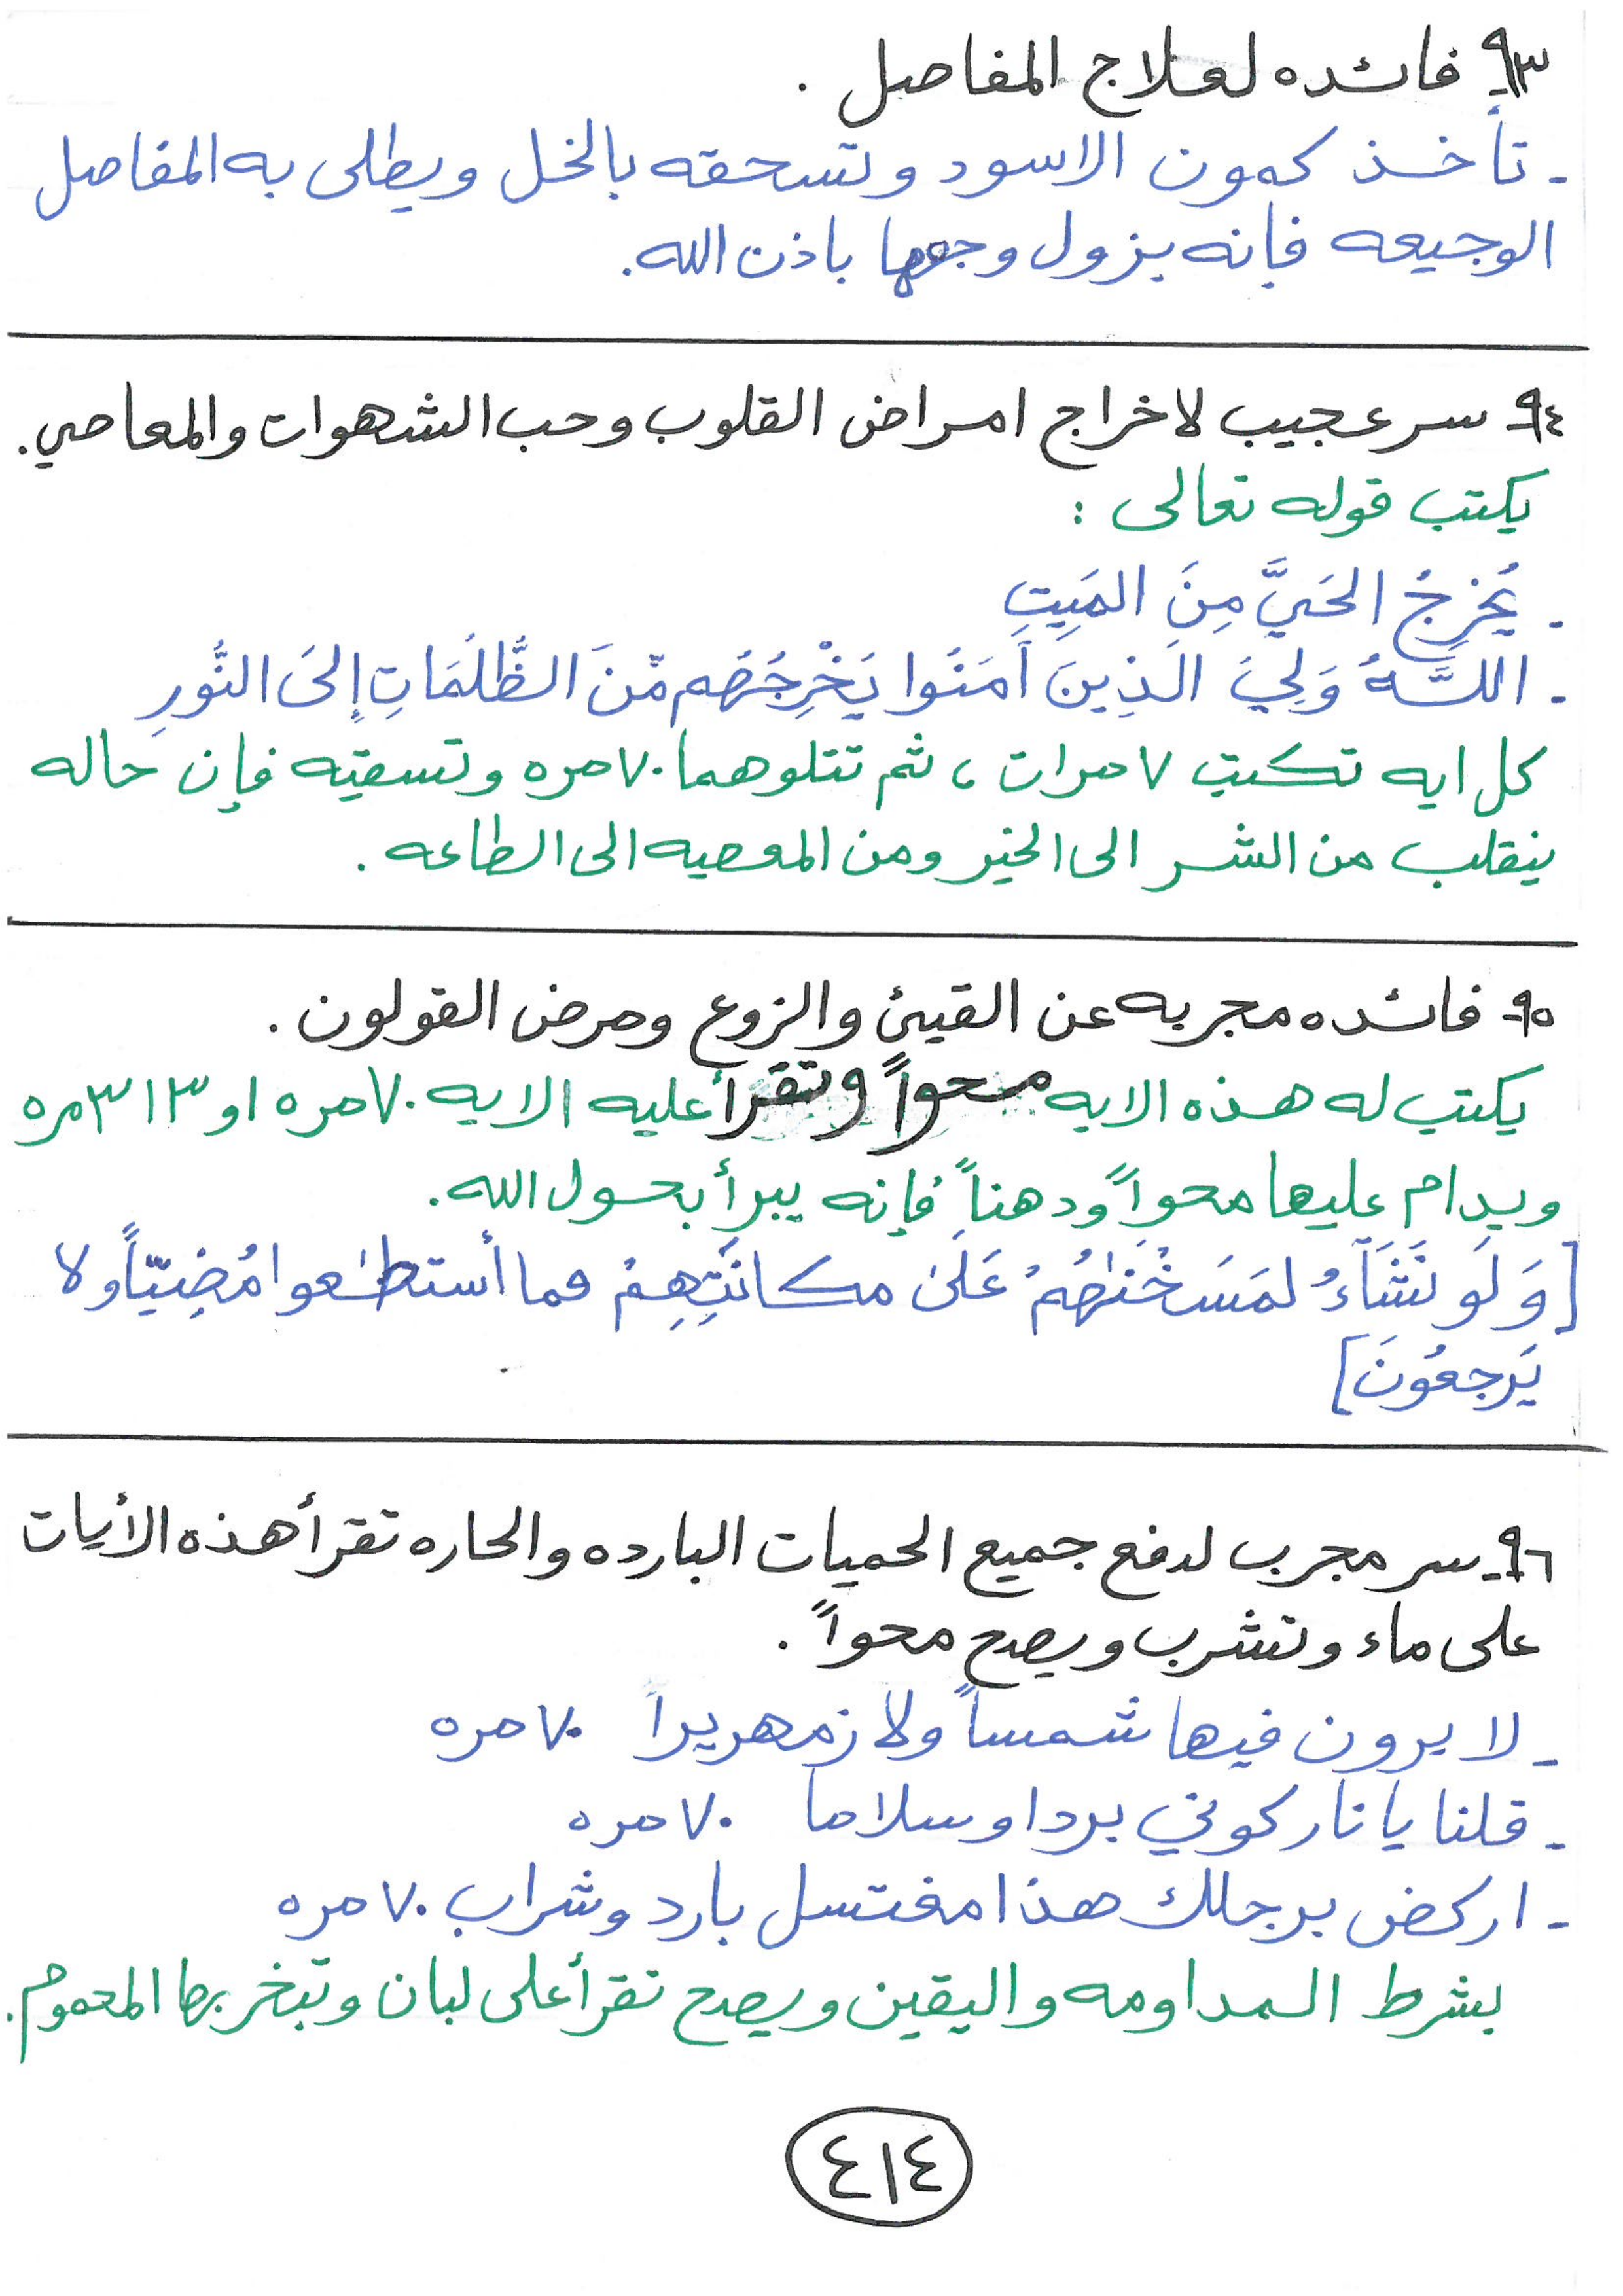 ٩٣- فائده لعلاج المفاصل .
- تأخذ كمون الاسود وتسحقه بالخل ويطلى به المفاصل
الوجيعه فإنه يزول وجعها باذن الله.
٩٤- سر عجيب لاخراج امراض القلوب وحب الشهوات والمعاصي.
يكتب قوله تعالى :
- يُخرِجُ الحَيَّ مِنَ المَيِتِ
- اللَّهُ وَلِيَ الَذِينَ آمَنُوا يَخْرِجُهُم مّنَ الظُّلُمَاتِ إِلىَ النُّورِ
كل ايه تكتب ٧ مرات ، ثم تتلوهما ٧٠ مره وتسقيه فإن حاله
ينقلب من الشر الى الخير ومن المعصيه الى الطاعه .
٩٥- فائده مجربه عن القيئ والزوع ومرض القولون .
يكتب له هذه الايه محواً وتقرأ عليه الايه ٧٠ مره او ٣١٣ مره
ويدام عليها محواً ودهناً فإنه يبرأ بحول الله.
[وَلَو نَشَآءُ لمَسَخْنَٰهُمْ عَلَىٰ مكانَتِهِمْ فما أستطَٰعوا مُضِيّاً ولا
يَرجعُونَ]
٩٦- سر مجرب لدفع جميع الحميات البارده والحاره تقرأ هذه الأيات
على ماء وتشرب ويصح محواً .
- لا يرون فيها شمساً ولا زمهريراً ٧٠ مره
- قلنا يا نار كوني بردا وسلاما ٧٠ مره
- اركض برجلك هذا مغتسل بارد وشراب ٧٠ مره
بشرط المداومه واليقين ويصح تقرأ على لبان وتبخر بها المحموم.
٤١٤